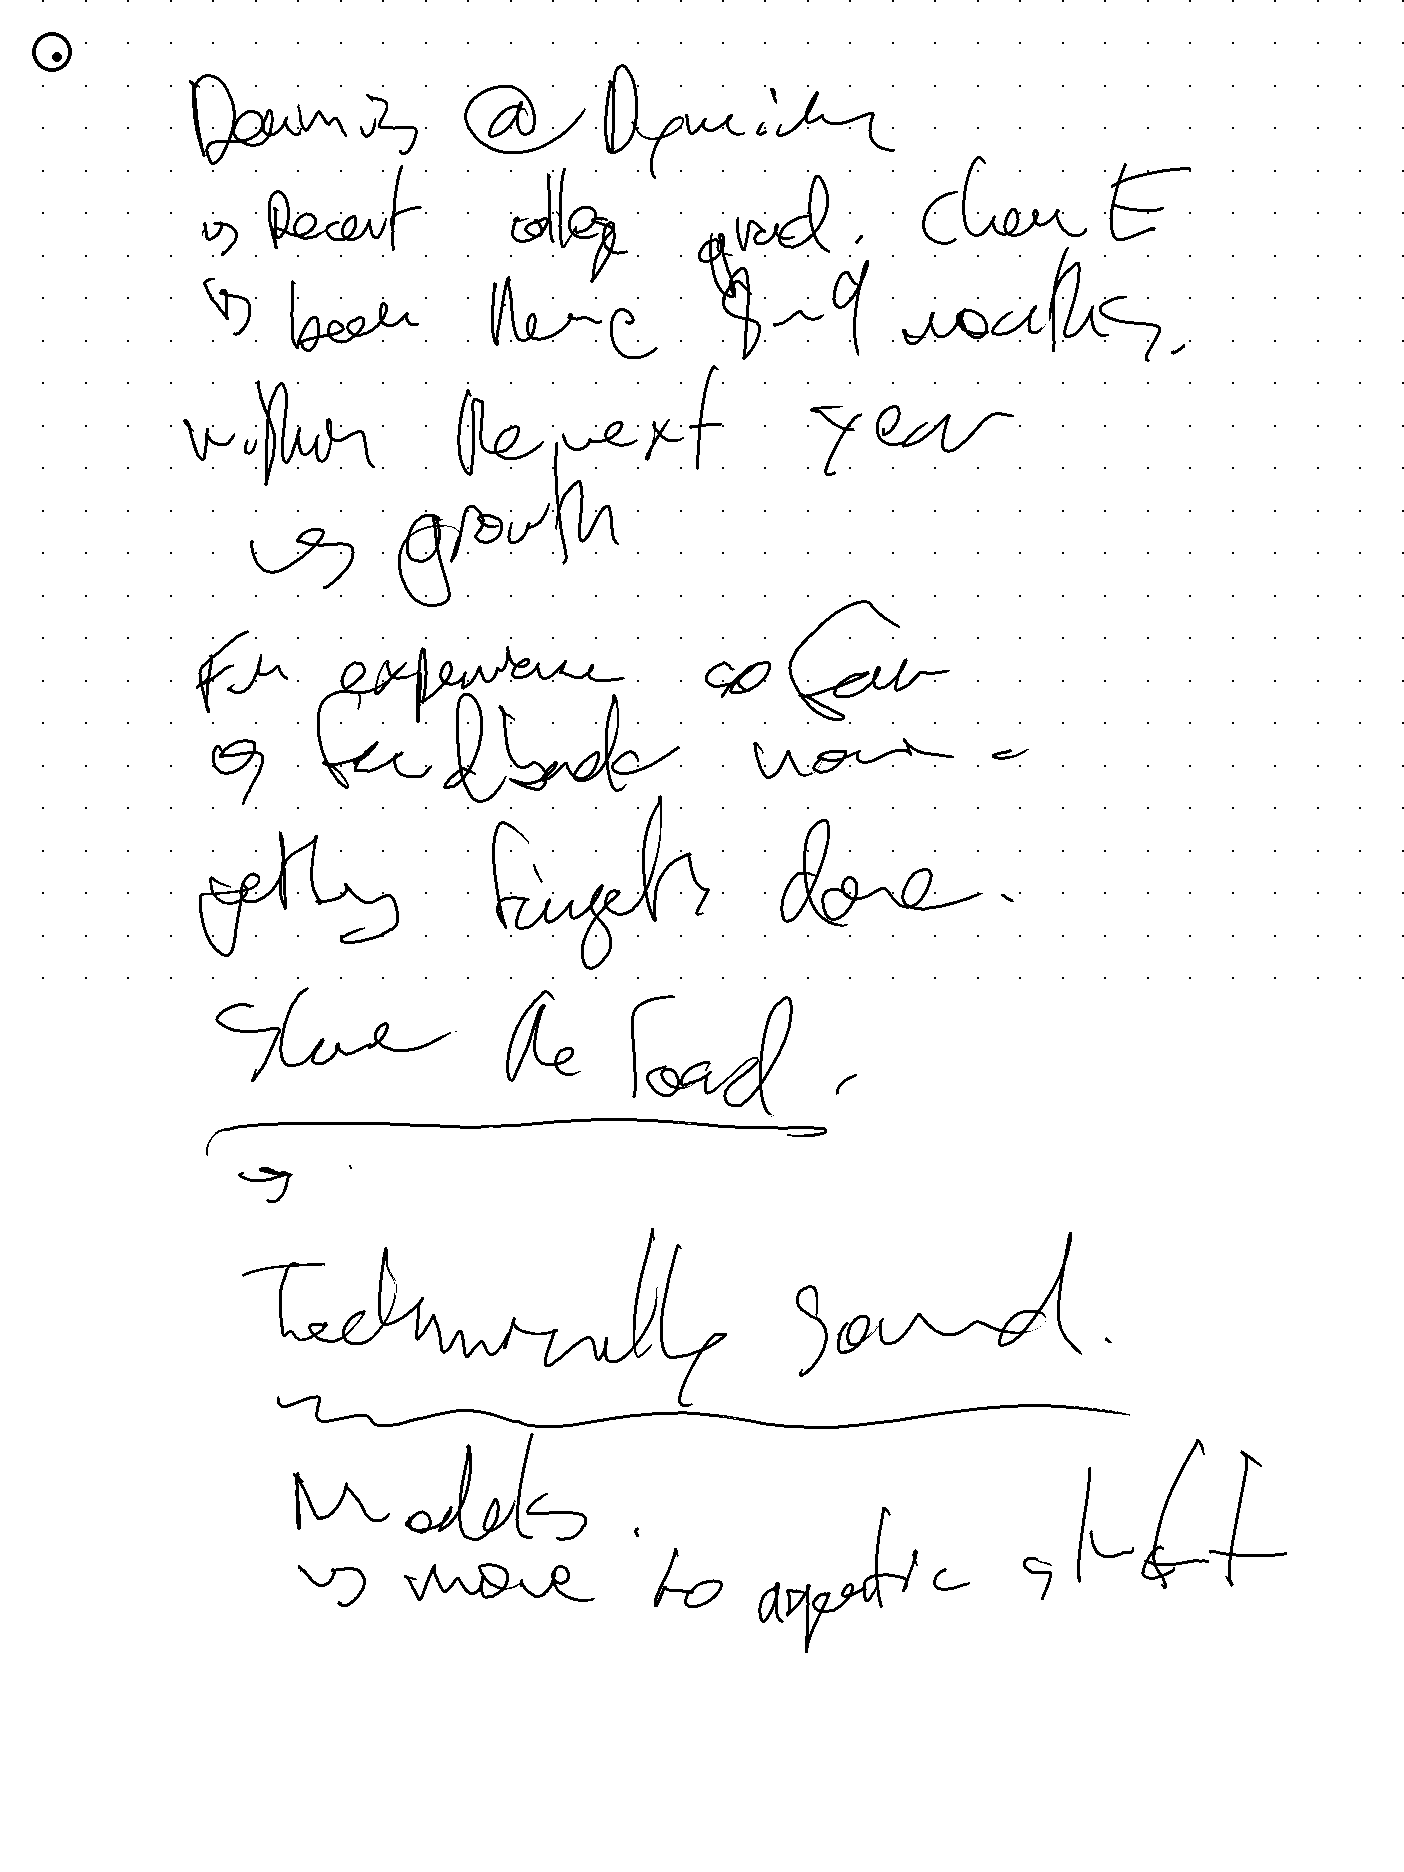 @
↳ Recent college grad. Chem E
↳ been there 8-9 months.
within the next year
↳ growth
Fun experience so far
↳ feedback
getting things done.
Share the load.
→
Technically sound.
Models.
↳ move to agentic shift